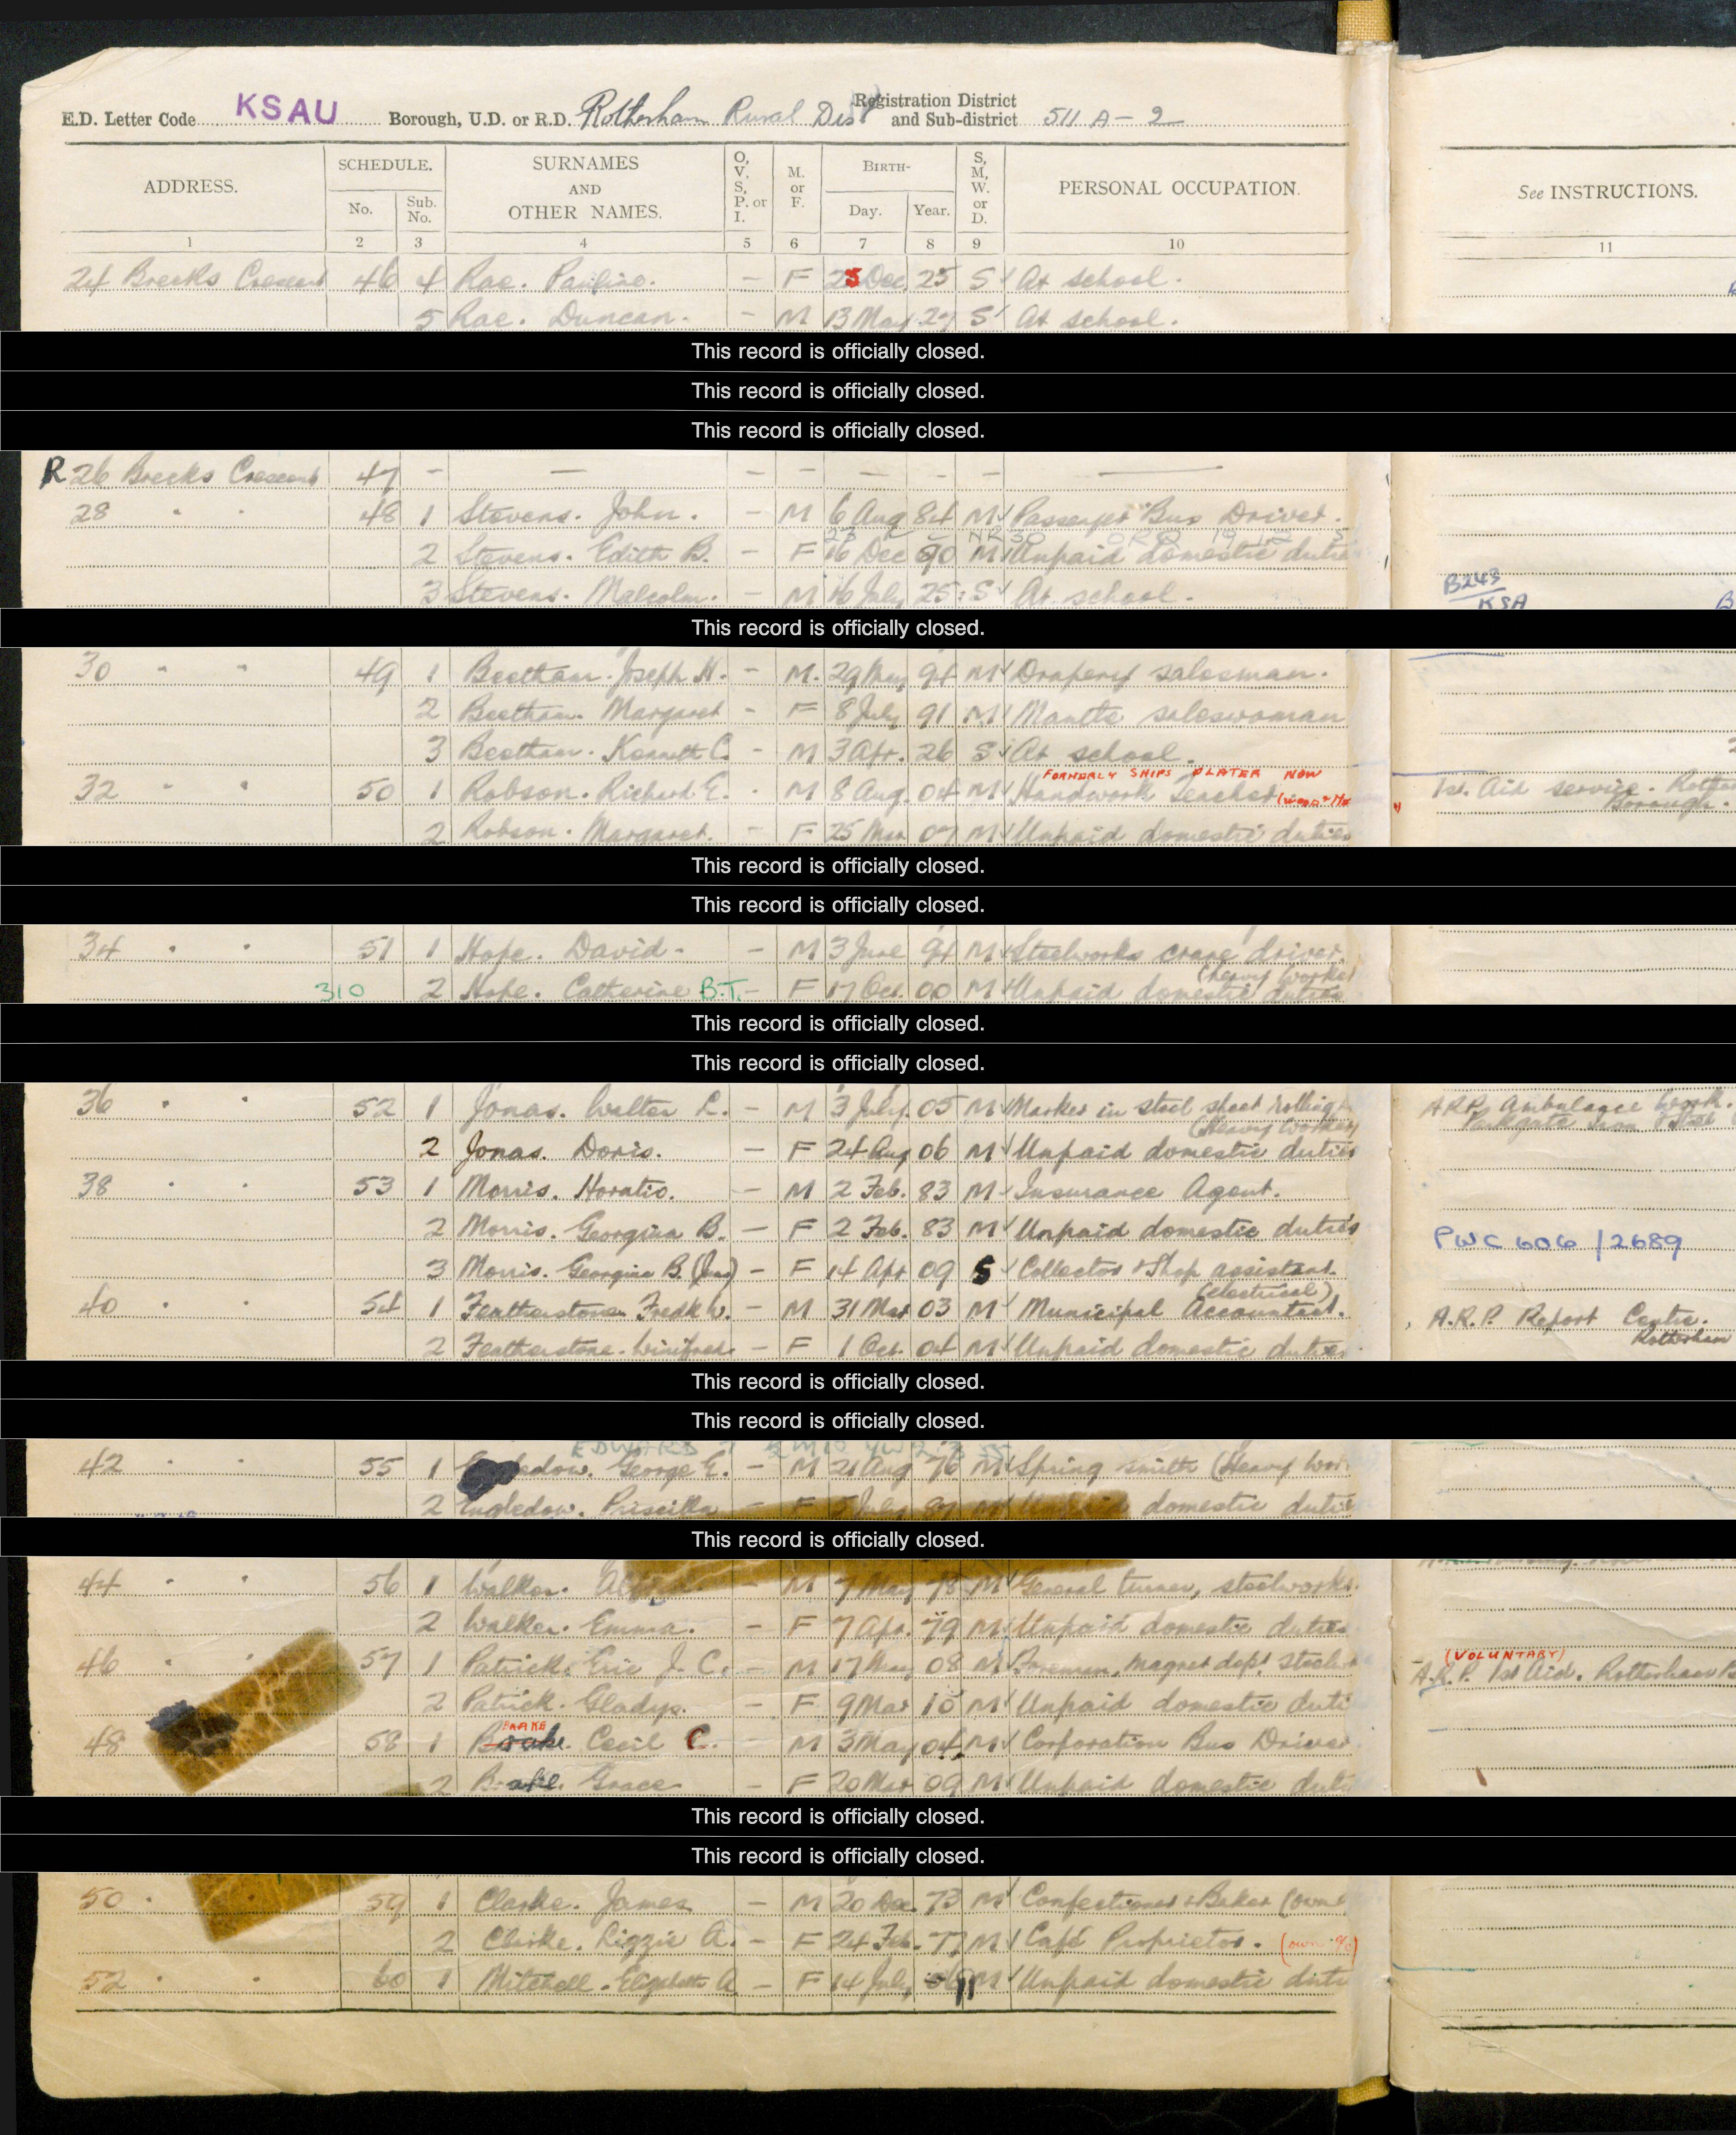 E.D. Letter Code KSAU Borough, U.D. or R.D. Rotherham Rural Dist Registration District and Sub-district 511 A - 2
ADDRESS. SCHEDULE. No. Sub. No. SURNAMES AND OTHER NAMES. O, V, S, P. or I. M. or F. BIRTH- Day. Year. S, M, W. or D. PERSONAL OCCUPATION. See INSTRUCTIONS.
1 2 3 4 5 6 7 8 9 10 11
24 Brecks Crescent 46 4 Rae. Pauline. - F Dec 25 S At school.
5 Rae. Duncan. - M 13 May 27 S At school.
This record is officially closed.
This record is officially closed.
This record is officially closed.
R 26 Brecks Crescent 47 - — - - — - - —
28 " " 48 1 Stevens. John. - M 6 Aug 84 M Passenger Bus Driver.
2 Stevens. Edith B. - F 16 Dec 90 M Unpaid domestic duties
3 Stevens. Malcolm. - M 16 July 25 S At school.
B243
KSA
This record is officially closed.
30 " " 49 1 Beetham. Joseph H. - M. 29 May 94 M Drapery salesman.
2 Beetham. Margaret - F 8 July 91 M Mantle saleswoman
3 Beetham. Kenneth C. - M 3 Apr. 26 S At school.
FORMERLY SHIPS PLATER NOW
32 " " 50 1 Robson. Richard E. - M 8 Aug. 04 M Handwork Teacher 1st. Aid service. Rother
Borough.
2 Robson. Margaret. - F 25 Mar 07 M Unpaid domestic duties
This record is officially closed.
This record is officially closed.
34 " " 51 1 Hope. David - - M 3 June 94 M Steelworks crane driver.
(Heavy Worker)
310 2 Hope. Catherine B.T. - F 17 Oct. 00 M Unpaid domestic duties
This record is officially closed.
This record is officially closed.
36 " " 52 1 Jonas. Walter L. - M 3 July 05 M Marker in steel sheet rolling A.R.P. Ambulance Work.
(Heavy Worker) Parkgate Iron & Steel
2 Jonas. Doris. - F 24 Aug 06 M Unpaid domestic duties
38 " " 53 1 Morris. Horatio. - M 2 Feb. 83 M Insurance Agent.
2 Morris. Georgina B. - F 2 Feb. 83 M Unpaid domestic duties PWC 606 / 2689
3 Morris. Georgina B. (Jun) - F 14 Apr 09 S Collector & Shop assistant.
(electrical)
40 " " 54 1 Featherstone Fredk W. - M 31 Mar 03 M Municipal Accountant. A.R.P. Report Centre.
Rotherham
2 Featherstone. Winifred. - F 1 Oct. 04 M Unpaid domestic duties
This record is officially closed.
This record is officially closed.
EDWARD
42 " " 55 1 edow. George E. - M 21 Aug 76 M Spring smith (Heavy Wor
2 Engledow. Priscilla - F 5 July M Unpaid domestic duties
This record is officially closed.
44 " " 56 1 Walker. - M 7 May 78 M General turner, steelworks.
2 Walker. Emma. - F 7 Apr. 79 M Unpaid domestic duties
(VOLUNTARY)
46 " " 57 1 Patrick. Eric J. C. - M 17 May 08 M Foreman, Magnet dept steel A.R.P. 1st Aid. Rotherham
2 Patrick. Gladys. - F 9 Mar 10 M Unpaid domestic duti
BRAKE
48 " " 58 1 Cecil C. - M 3 May 04 M Corporation Bus Driver
2 Brake. Grace - F 20 Mar 09 M Unpaid domestic duti
This record is officially closed.
This record is officially closed.
50 " " 59 1 Clarke. James - M 20 Dec. 73 M Confectioner & Baker (own
2 Clarke. Lizzie A. - F 24 Feb. 77 M Café Proprietor. (own a/c)
52 " " 60 1 Mitchell. Elizabeth A - F 14 July M Unpaid domestic duti